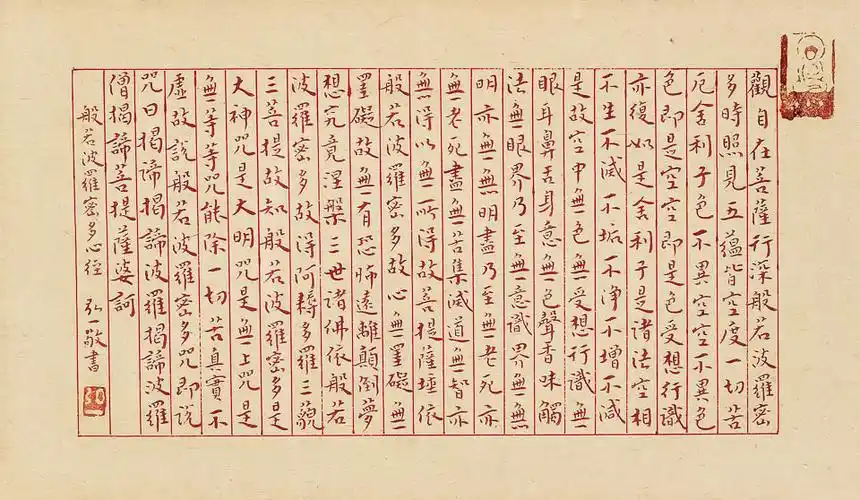 觀自在菩薩行深般若波羅密
多時照見五蘊皆空度一切苦
厄舍利子色不異空空不異色
色即是空空即是色受想行識
亦復如是舍利子是諸法空相
不生不滅不垢不淨不增不減
是故空中無色無受想行識無
眼耳鼻舌身意無色聲香味觸
法無眼界乃至無意識界無無
明亦無無明盡乃至無老死亦
無老死盡無苦集滅道無智亦
無得以無所得故菩提薩埵依
般若波羅密多故心無罣礙無
罣礙故無有恐怖遠離顛倒夢
想究竟涅槃三世諸佛依般若
波羅密多故得阿耨多羅三藐
三菩提故知般若波羅密多是
大神咒是大明咒是無上咒是
無等等咒能除一切苦真實不
虛故說般若波羅密多咒即說
咒曰揭諦揭諦波羅揭諦波羅
僧揭諦菩提薩婆訶
般若波羅密多心經 弘一敬書